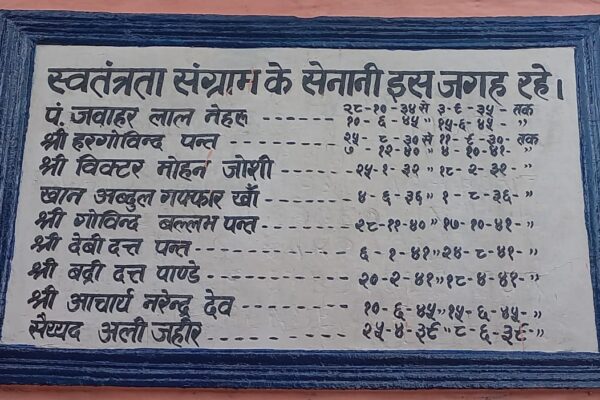 स्वतंत्रता संग्राम के सेनानी इस जगह रहे।
पं. जवाहर लाल नेहरू ------- २८-१०-३४ से ३-९-३५- तक
१०-६-४५ " १५-६-४५ "
श्री हरगोविन्द पन्त ------- २५-८-३० से ११-९-३०- तक
७-१२-४० " ४-१०-४१- "
श्री विक्टर मोहन जोशी ------- २५-१-३२ " १८-२-३२- "
खान अब्दुल गफ्फार खाँ ------- ४-६-३६ " १-८-३६- "
श्री गोविन्द बल्लभ पन्त ------- २८-११-४० " १७-१०-४१- "
श्री देबी दत्त पन्त ------- ६-१-४१ " २४-८-४१- "
श्री बद्री दत्त पाण्डे ------- २०-२-४१ " १८-४-४१- "
श्री आचार्य नरेन्द्र देव ------- १०-६-४५ " १५-६-४५- "
सैय्यद अली जहीर ------- २५-४-३९ " ८-६-३९- "